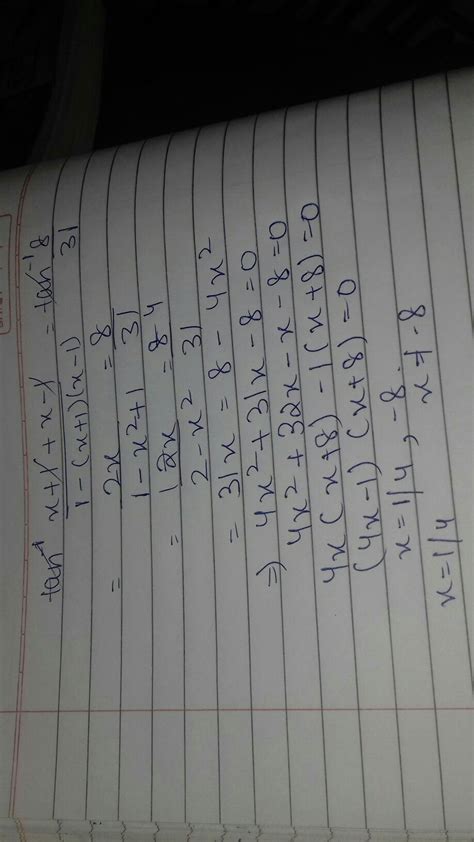 tan⁻¹ x+1+x-1 / 1-(x+1)(x-1) = tan⁻¹ 8/31
= 2x / 1-x²+1 = 8/31
= 2x / 2-x² = 8 4 / 31
= 31x = 8 - 4x²
⇒ 4x² + 31x - 8 = 0
4x² + 32x - x - 8 = 0
4x(x+8) - 1(x+8) = 0
(4x-1)(x+8) = 0
x = 1/4, -8.
x = 1/4 x ≠ -8